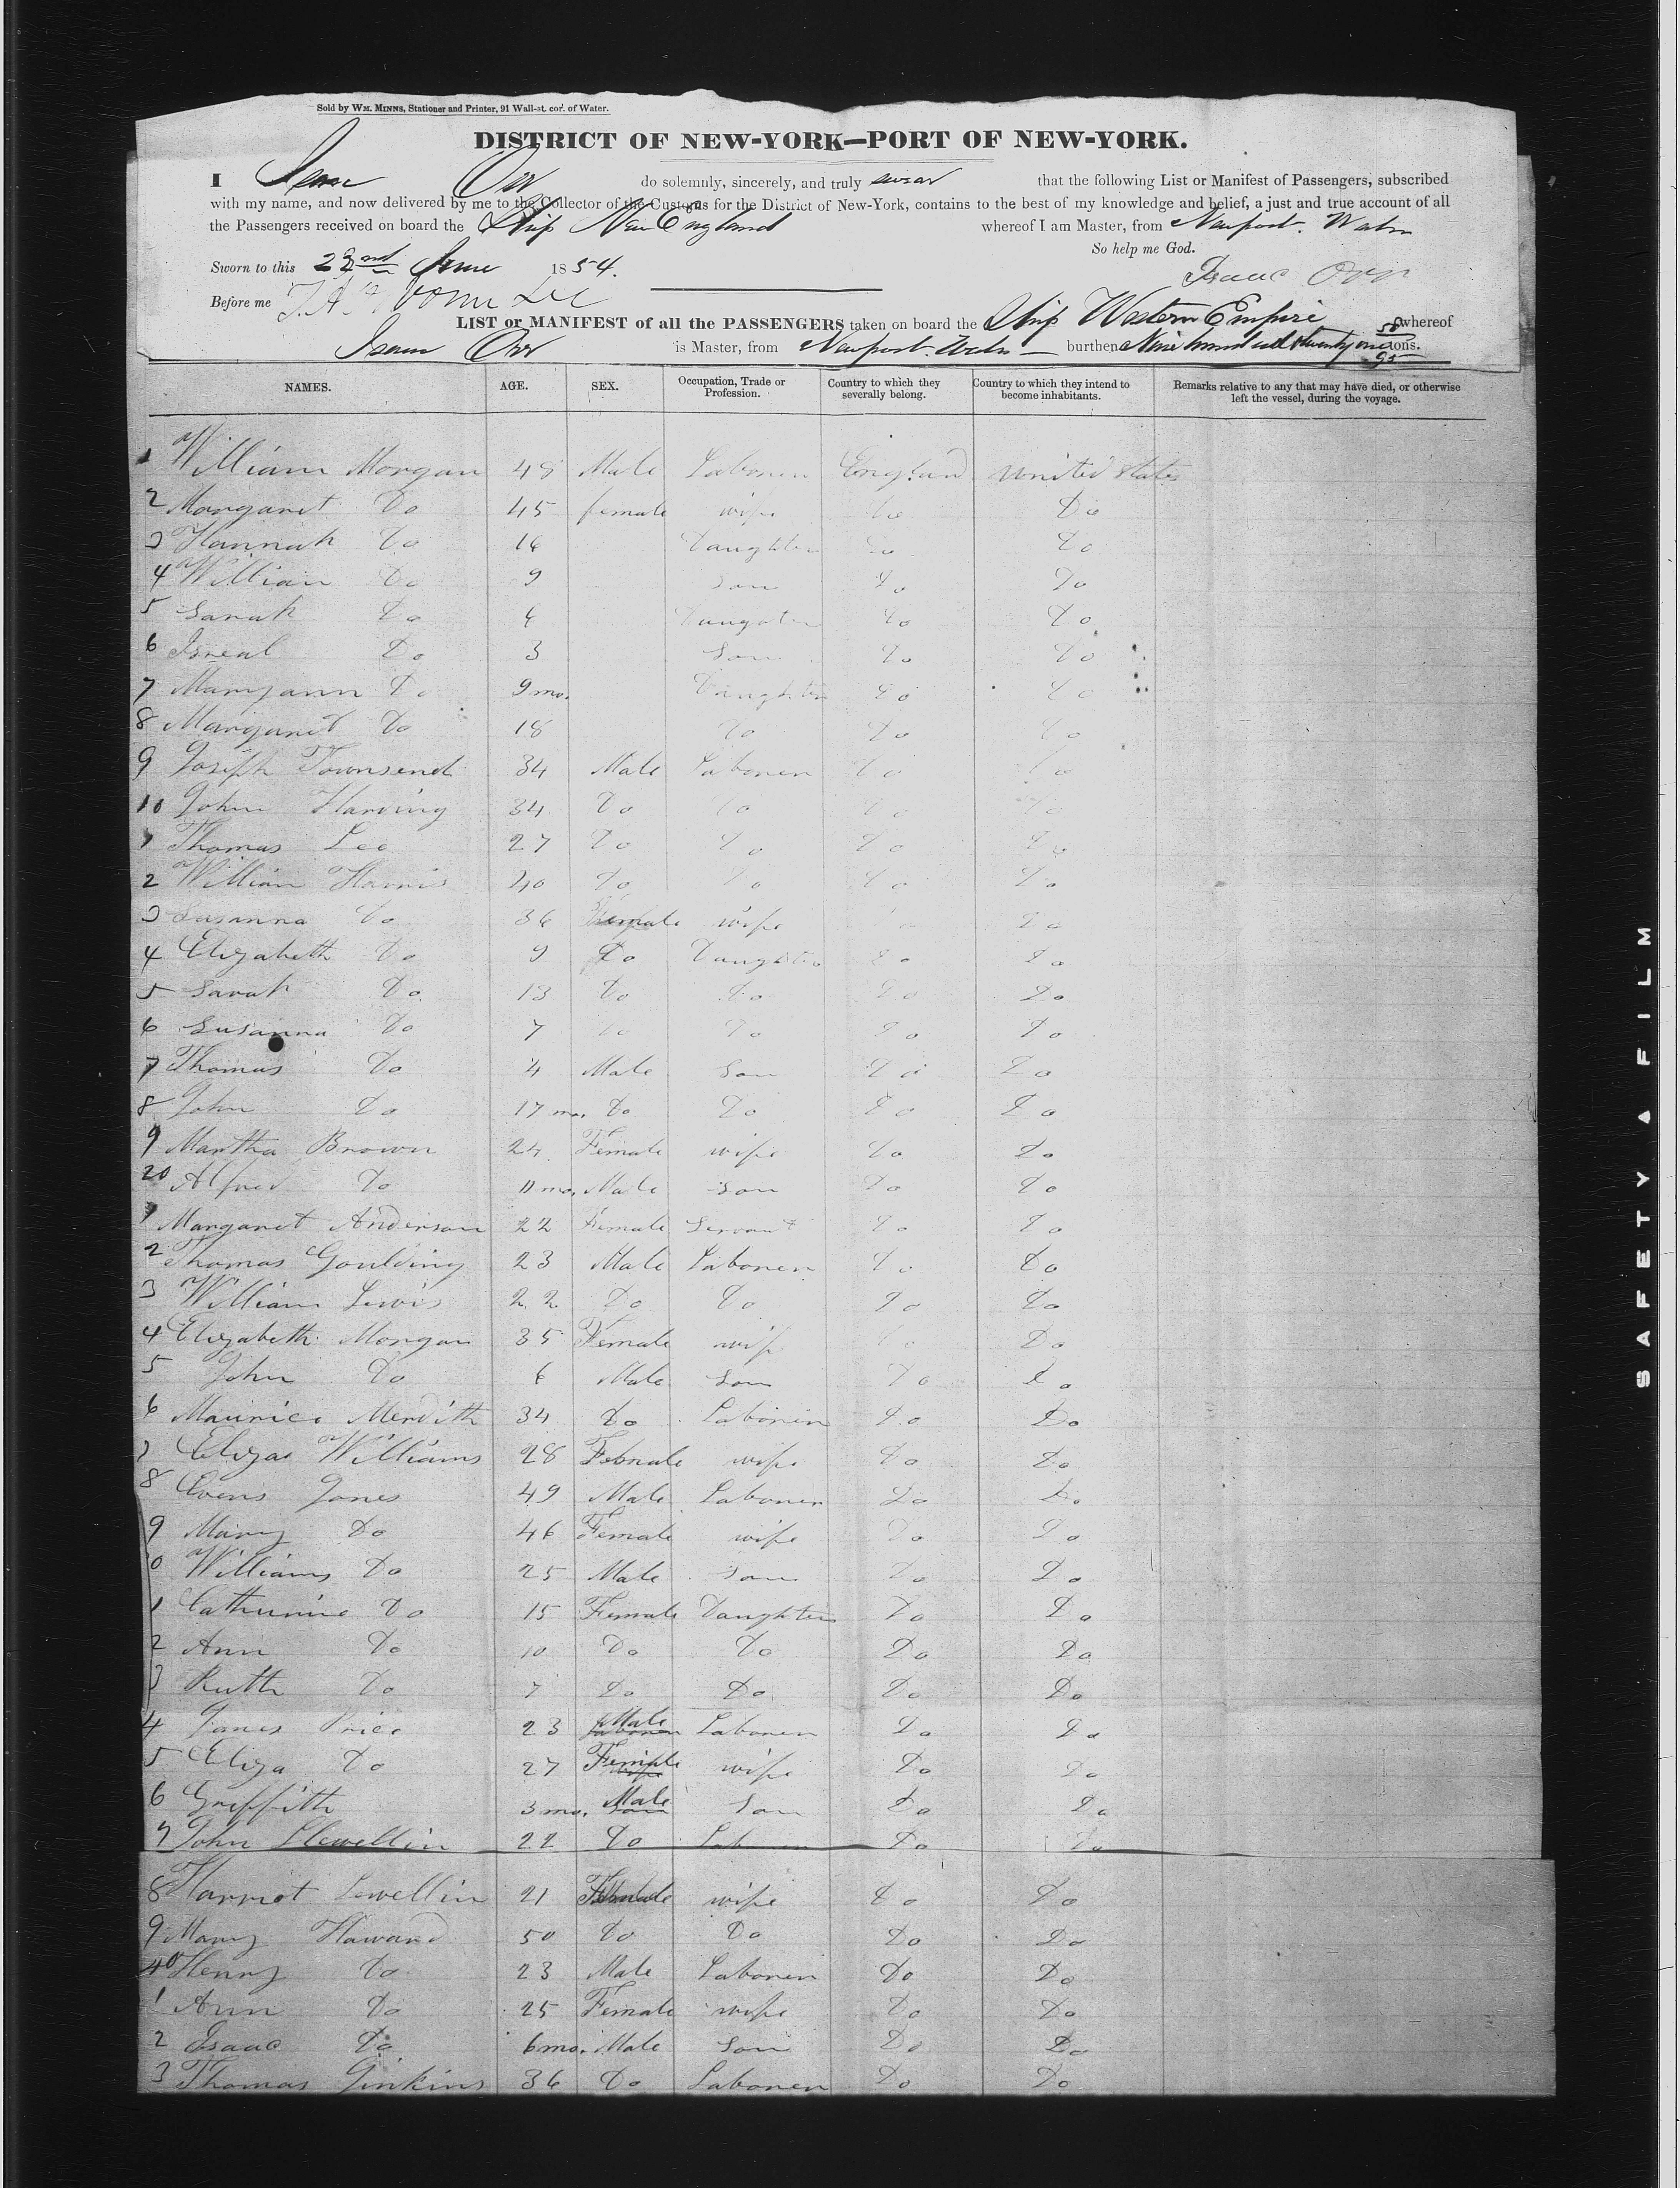 Sold by WM. MINNS, Stationer and Printer, 91 Wall-st. cor. of Water.
DISTRICT OF NEW-YORK—PORT OF NEW-YORK.
I Isaac Orr do solemnly, sincerely, and truly swear that the following List or Manifest of Passengers, subscribed
with my name, and now delivered by me to the Collector of the Customs for the District of New-York, contains to the best of my knowledge and belief, a just and true account of all
the Passengers received on board the Ship New England whereof I am Master, from Newport. Wales
So help me God.
Sworn to this 22nd June 1854.
Isaac Orr
Before me
LIST or MANIFEST of all the PASSENGERS taken on board the Ship Western Empire whereof
Isaac Orr is Master, from Newport. Wales burthen Nine hundred & twenty one 50/95 tons.
NAMES. AGE. SEX. Occupation, Trade or Profession. Country to which they severally belong. Country to which they intend to become inhabitants. Remarks relative to any that may have died, or otherwise left the vessel, during the voyage.
1 William Morgan 48 Male Laborer England United States
2 Margaret Do 45 female wife Do Do
3 Hannah Do 16 Daughter Do Do
4 William Do 9 Son Do Do
5 Sarah Do 6 Daughter Do Do
6 Isreal Do 3 Son Do Do
7 Maryann Do 9 mo. Daughter Do Do
8 Margaret Do 18 Do Do Do
9 Joseph Townsend 34 Male Laborer Do Do
10 John Harving 34 Do Do Do Do
1 Thomas Lee 27 Do Do Do Do
2 William Harris 40 Do Do Do Do
3 Susanna Do 36 Female wife Do
4 Elizabeth Do 9 Do Daughter Do Do
5 Sarah Do 13 Do Do Do Do
6 Susanna Do 7 Do Do Do Do
7 Thomas Do 4 Male Son Do Do
8 John Do 17 mo. Do Do Do Do
9 Martha Brown 24 Female wife Do Do
20 Alfred Do 11 mo. Male Son Do Do
1 Margaret Anderson 22 Female Servant Do Do
2 Thomas Goulding 23 Male Laborer Do Do
3 William Lewis 22 Do Do Do Do
4 Elizabeth Morgan 35 Female wife Do Do
5 John Do 6 Male Son Do Do
6 Maurice Merdith 34 Do Laborer Do Do
7 Elizas Williams 28 Female wife Do Do
8 Evens Jones 49 Male Laborer Do Do
9 Mary Do 46 Female wife Do Do
0 Williams Do 25 Male Son Do Do
1 Cathurine Do 15 Female Daughter Do Do
2 Ann Do 10 Do Do Do Do
3 Ruth Do 7 Do Do Do Do
4 James Price 23 Male Laborer Do Do
5 Eliza Do 27 Female wife Do Do
6 Griffith 3 mo. Male Son Do Do
7 John Llewellin 22 Do Laborer Do Do
8 Harriot Lewellin 21 Female wife Do Do
9 Mary Haward 50 Do Do Do Do
40 Henry Do 23 Male Laborer Do Do
1 Ann Do 25 Female wife Do Do
2 Isaac Do 6 mo. Male Son Do Do
3 Thomas Ginkins 36 Do Laborer Do Do
SAFETY ▲ FILM